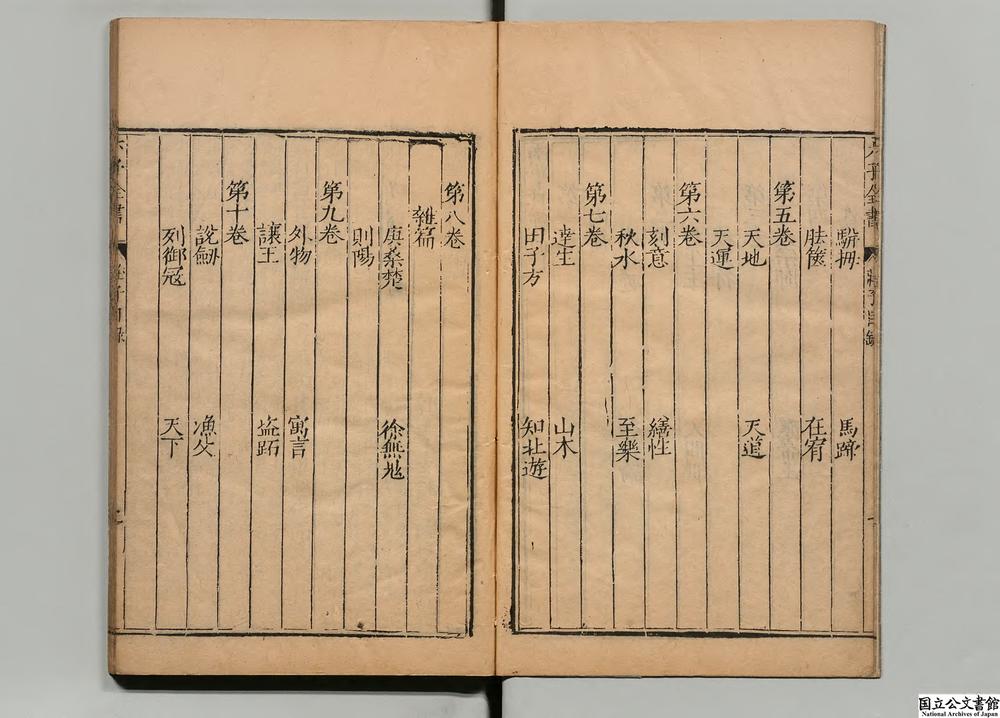 六子全書 莊子目録
駢拇 馬蹄
胠篋 在宥
第五卷
天地 天道
天運
第六卷
刻意 繕性
秋水 至樂
第七卷
達生 山木
田子方 知北遊
第八卷
雜篇
庚桑楚 徐無鬼
則陽
第九卷
外物 寓言
讓王 盗跖
第十卷
說劍 漁父
列御冦 天下
六子全書 莊子目録
国立公文書館
National Archives of Japan